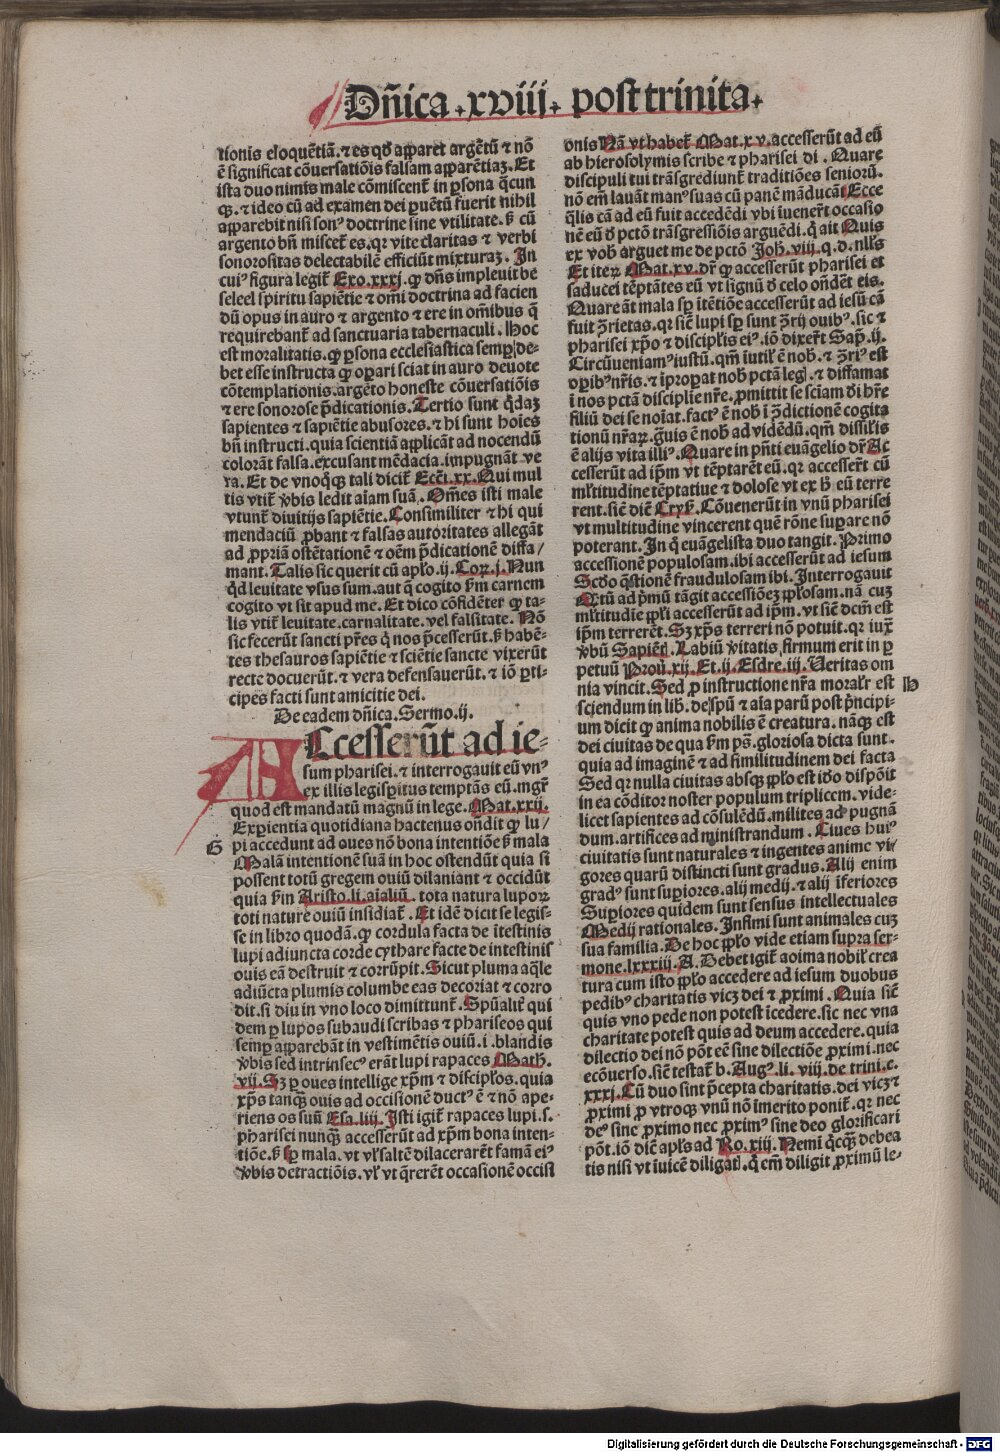 Dñica .xviii. post trinita.
tionis eloquẽtiã. ⁊ es qđ apparet argẽtũ ⁊ nõ
ẽ significat cõuersatiõis falsam apparẽtiaz. Et
ista duo nimis male cõmiscent̃ in ꝑsona q̃cun
qꝫ. ⁊ ideo cũ ad examen dei ꝑuẽtũ fuerit nihil
apparebit nisi sonꝰ doctrine sine vtilitate. ß cũ
argento bñ miscet̃ es. qꝛ vite claritas ⁊ verbi
sonorositas delectabilẽ efficiũt mixturaꝫ. In
cuiꝰ figura legit̃ Exo. xxxj. ꝙ dñs impleuit be
seleel spiritu sapiẽtie ⁊ om̃i doctrina ad facien
dũ opus in auro ⁊ argento ⁊ ere in om̃ibus q̃
requirebant̃ ad sanctuaria tabernaculi. Hoc
est moralitatis. ꝙ ꝑsona ecclesiastica semꝑ de-
bet esse instructa ꝙ oꝑari sciat in auro deuote
cõtemplationis. argẽto honeste cõuersatiõis
⁊ ere sonorose p̃dicationis. Tertio sunt q̃daꝫ
sapientes ⁊ sapiẽtie abusores. ⁊ hi sunt hoĩes
bñ instructi. quia scientiã applicãt ad nocendũ
colorãt falsa. excusant mẽdacia. impugnãt ve
ra. Et de vnoq̃qꝫ tali dicit̃ Ecc̃i. xx. Qui mul
tis vtit̃ ṽbis ledit aĩam suã. Om̃es isti male
vtunt̃ diuitijs sapiẽtie. Consimiliter ⁊ hi qui
mendaciũ ꝓbant ⁊ falsas autoritates allegãt
ad ꝓpriã ostẽtationẽ ⁊ oẽm p̃dicationẽ diffa/
mant. Talis sic querit cũ apl̃o .ij. Cor. j. Nun
qđ leuitate vsus sum. aut q̃ cogito ẜm carnem
cogito vt sit apud me. Et dico cõfidẽter ꝙ ta-
lis vtit̃ leuitate. carnalitate. vel falsitate. Nõ
sic fecerũt sancti pr̃es q̃ nos p̃cesserũt. ß habẽ-
tes thesauros sapiẽtie ⁊ sciẽtie sancte vixerũt
recte docuerũt. ⁊ vera defensauerũt. ⁊ iõ ꝑti-
cipes facti sunt amicitie dei.
De eadem dñica. Sermo .ij.
ACcesserũt ad ie-
sum pharisei. ⁊ interrogauit eũ vnꝰ
ex illis legisꝑitus temptãs eũ. mgr̃
quod est mandatũ magnũ in lege. Mat. xxij.
Exꝑientia quotidiana hactenus oñdit ꝙ lu/
G pi accedunt ad oues nõ bona intentiõe ß mala
Malã intentionẽ suã in hoc ostendũt quia si
possent totũ gregem ouiũ dilaniant ⁊ occidũt
quia ẜm Aristo. li. aĩaliũ. tota natura lupoꝛ
toti nature ouiũ insidiat̃. Et idẽ dicit se legis-
se in libro quodã. ꝙ cordula facta de ĩtestinis
lupi adiuncta corde cythare facte de intestinis
ouis eã destruit ⁊ corrũpit. Sicut pluma aq̃le
adiũcta plumis columbe eas decoriat ⁊ corro
dit. si diu in vno loco dimittunt̃. Sp̃ualit̃ qui
dem ꝑ lupos subaudi scribas ⁊ phariseos qui
semꝑ apparebãt in vestimẽtis ouiũ. i. blandis
ṽbis sed intrinsecꝰ erãt lupi rapaces Math.
vij. Sꝫ ꝑ oues intellige xp̃m ⁊ discipl̃os. quia
xp̃s tanqꝫ ouis ad occisionẽ ductꝰ ẽ ⁊ nõ ape-
riens os suũ Esa. liij. Isti igit̃ rapaces lupi. s.
pharisei nunqꝫ accesserũt ad xp̃m bona inten-
tiõe. ß sꝑ mala. vt vl̃ saltẽ dilacerarẽt famã eiꝰ
ṽbis detractiõis. vl̃ vt q̃rerẽt occasionẽ occisi
onis Nã vt habet̃ Mat. xv. accesserũt ad eũ
ab hierosolymis scribe ⁊ pharisei di. Quare
discipuli tui trãsgrediunt̃ traditiões senioꝝ.
nõ em̃ lauãt manꝰ suas cũ panẽ mãducãt Ecce
q̃lis cã ad eũ fuit accedẽdi vbi iuenert̃ occasio
nẽ eũ đ pctõ trãsgressiõis arguẽdi. q̃ ait Quis
ex vob̃ arguet me de pctõ Joh. viij. q. d. nll̃s
Et iteꝝ Mat. xv. dr̃ ꝙ accesserũt pharisei et
saducei tẽptãtes eũ vt signũ đ celo oñdẽt eis.
Quare ãt mala sꝑ ĩtẽtiõe accesserũt ad iesũ cã
fuit ꝯ̃rietas. qꝛ sic̃ lupi sꝑ sunt ꝯ̃rij ouibꝰ. sic ⁊
pharisei xp̃o ⁊ discipl̃is eiꝰ. iõ dixert̃ Sap̃. ij.
Circũueniamꝰ iustũ. qm̃ iutil̃ ẽ nob̃. ⁊ ꝯ̃riꝰ est
oꝑibꝰ nr̃is. ⁊ ĩproꝑat nob̃ pctã leg. ⁊ diffamat
ĩ nos pctã disciplĩe nr̃e. ꝓmittit se sciam đi hr̃e
filiũ dei se noĩat. factꝰ ẽ nob̃ ĩ ꝯ̃dictionẽ cogita
tionũ nr̃aꝝ. g̃uis ẽ nob̃ ad vidẽdũ. qm̃ dissil̃is
ẽ alijs vita illiꝰ. Quare in pñti euãgelio dr̃ Ac
cesserũt ad ip̃m vt tẽptarẽt eũ. qꝛ accessert̃ cũ
ml̃titudine tẽptatiue ⁊ dolose vt ex h̃ eũ terre
rent. sic̃ diẽ Crys̃. Cõuenerũt in vnũ pharisei
vt multitudine vincerent quẽ rõne suꝑare nõ
poterant. In q̃ euãgelista duo tangit. Primo
accessionẽ populosam. ibi accesserũt ad iesum
Scđo q̃stionẽ fraudulosam ibi. Interrogauit
Q̃tũ ad p̃mũ tãgit accessiõeꝫ ppl̃osam. nã cuꝫ
ml̃titudĩe ppl̃i accesserũt ad ip̃m. vt sic̃ dcm̃ est
ip̃m terrerẽt. Sꝫ xp̃s terreri nõ potuit. qꝛ iux̃
ṽbũ Sapiẽt̃. Labiũ ṽitatis firmum erit in ꝑ
petuũ Prou. xij. Et. ij. Esdre. iij. Veritas om
nia vincit. Sed ꝓ instructione nr̃a moralr̃ est H
sciendum in lib. de spũ ⁊ aĩa parũ post p̃ncipi-
um dicit ꝙ anima nobilis ẽ creatura. nãqꝫ est
dei ciuitas de qua ẜm ps̃. gloriosa dicta sunt.
quia ad imaginẽ ⁊ ad similitudinem dei facta
Sed qꝛ nulla ciuitas absqꝫ ppl̃o est iđo dispõit
in ea cõditor noster populum triplicem. vide-
licet sapientes ad cõsulẽdũ. milites ad pugnã
dum. artifices ad ministrandum. Ciues huiꝰ
ciuitatis sunt naturales ⁊ ingentes anime vi/
gores quarũ distincti sunt gradus. Alij enim
gradꝰ sunt suꝑiores. alij medij. ⁊ alij ĩferiores
Suꝑiores quidem sunt sensus intellectuales
Medij rationales. Infimi sunt animales cuꝫ
sua familia. De hoc ppl̃o vide etiam supra ser-
mone. lxxxiij. A. Debet igit̃ aoima nobil̃ crea
tura cum isto ppl̃o accedere ad iesum duobus
pedibꝰ charitatis vicꝫ dei ⁊ ꝓximi. Quia sic̃
quis vno pede non potest ĩcedere. sic nec vna
charitate potest quis ad deum accedere. quia
dilectio dei nõ põt eẽ sine dilectiõe ꝓximi. nec
ecõuerso. sic̃ testat̃ b. Augꝰ. li. viij. de trini. c.
xxxj. Cũ duo sint p̃cepta charitatis. dei vicꝫ ⁊
ꝓximi ꝓ vtroqꝫ vnũ nõ ĩmerito ponit̃. qꝛ nec
deꝰ sine ꝓximo nec ꝓximꝰ sine deo glorificari
põt. iõ diẽ apl̃s ad Ro. xiij. Nemĩ q̃cq̃ꝫ debea
tis nisi vt ĩuicẽ diligat̃. q̃ em̃ diligit ꝓximũ le-
Digitalisierung gefördert durch die Deutsche Forschungsgemeinschaft - DFG